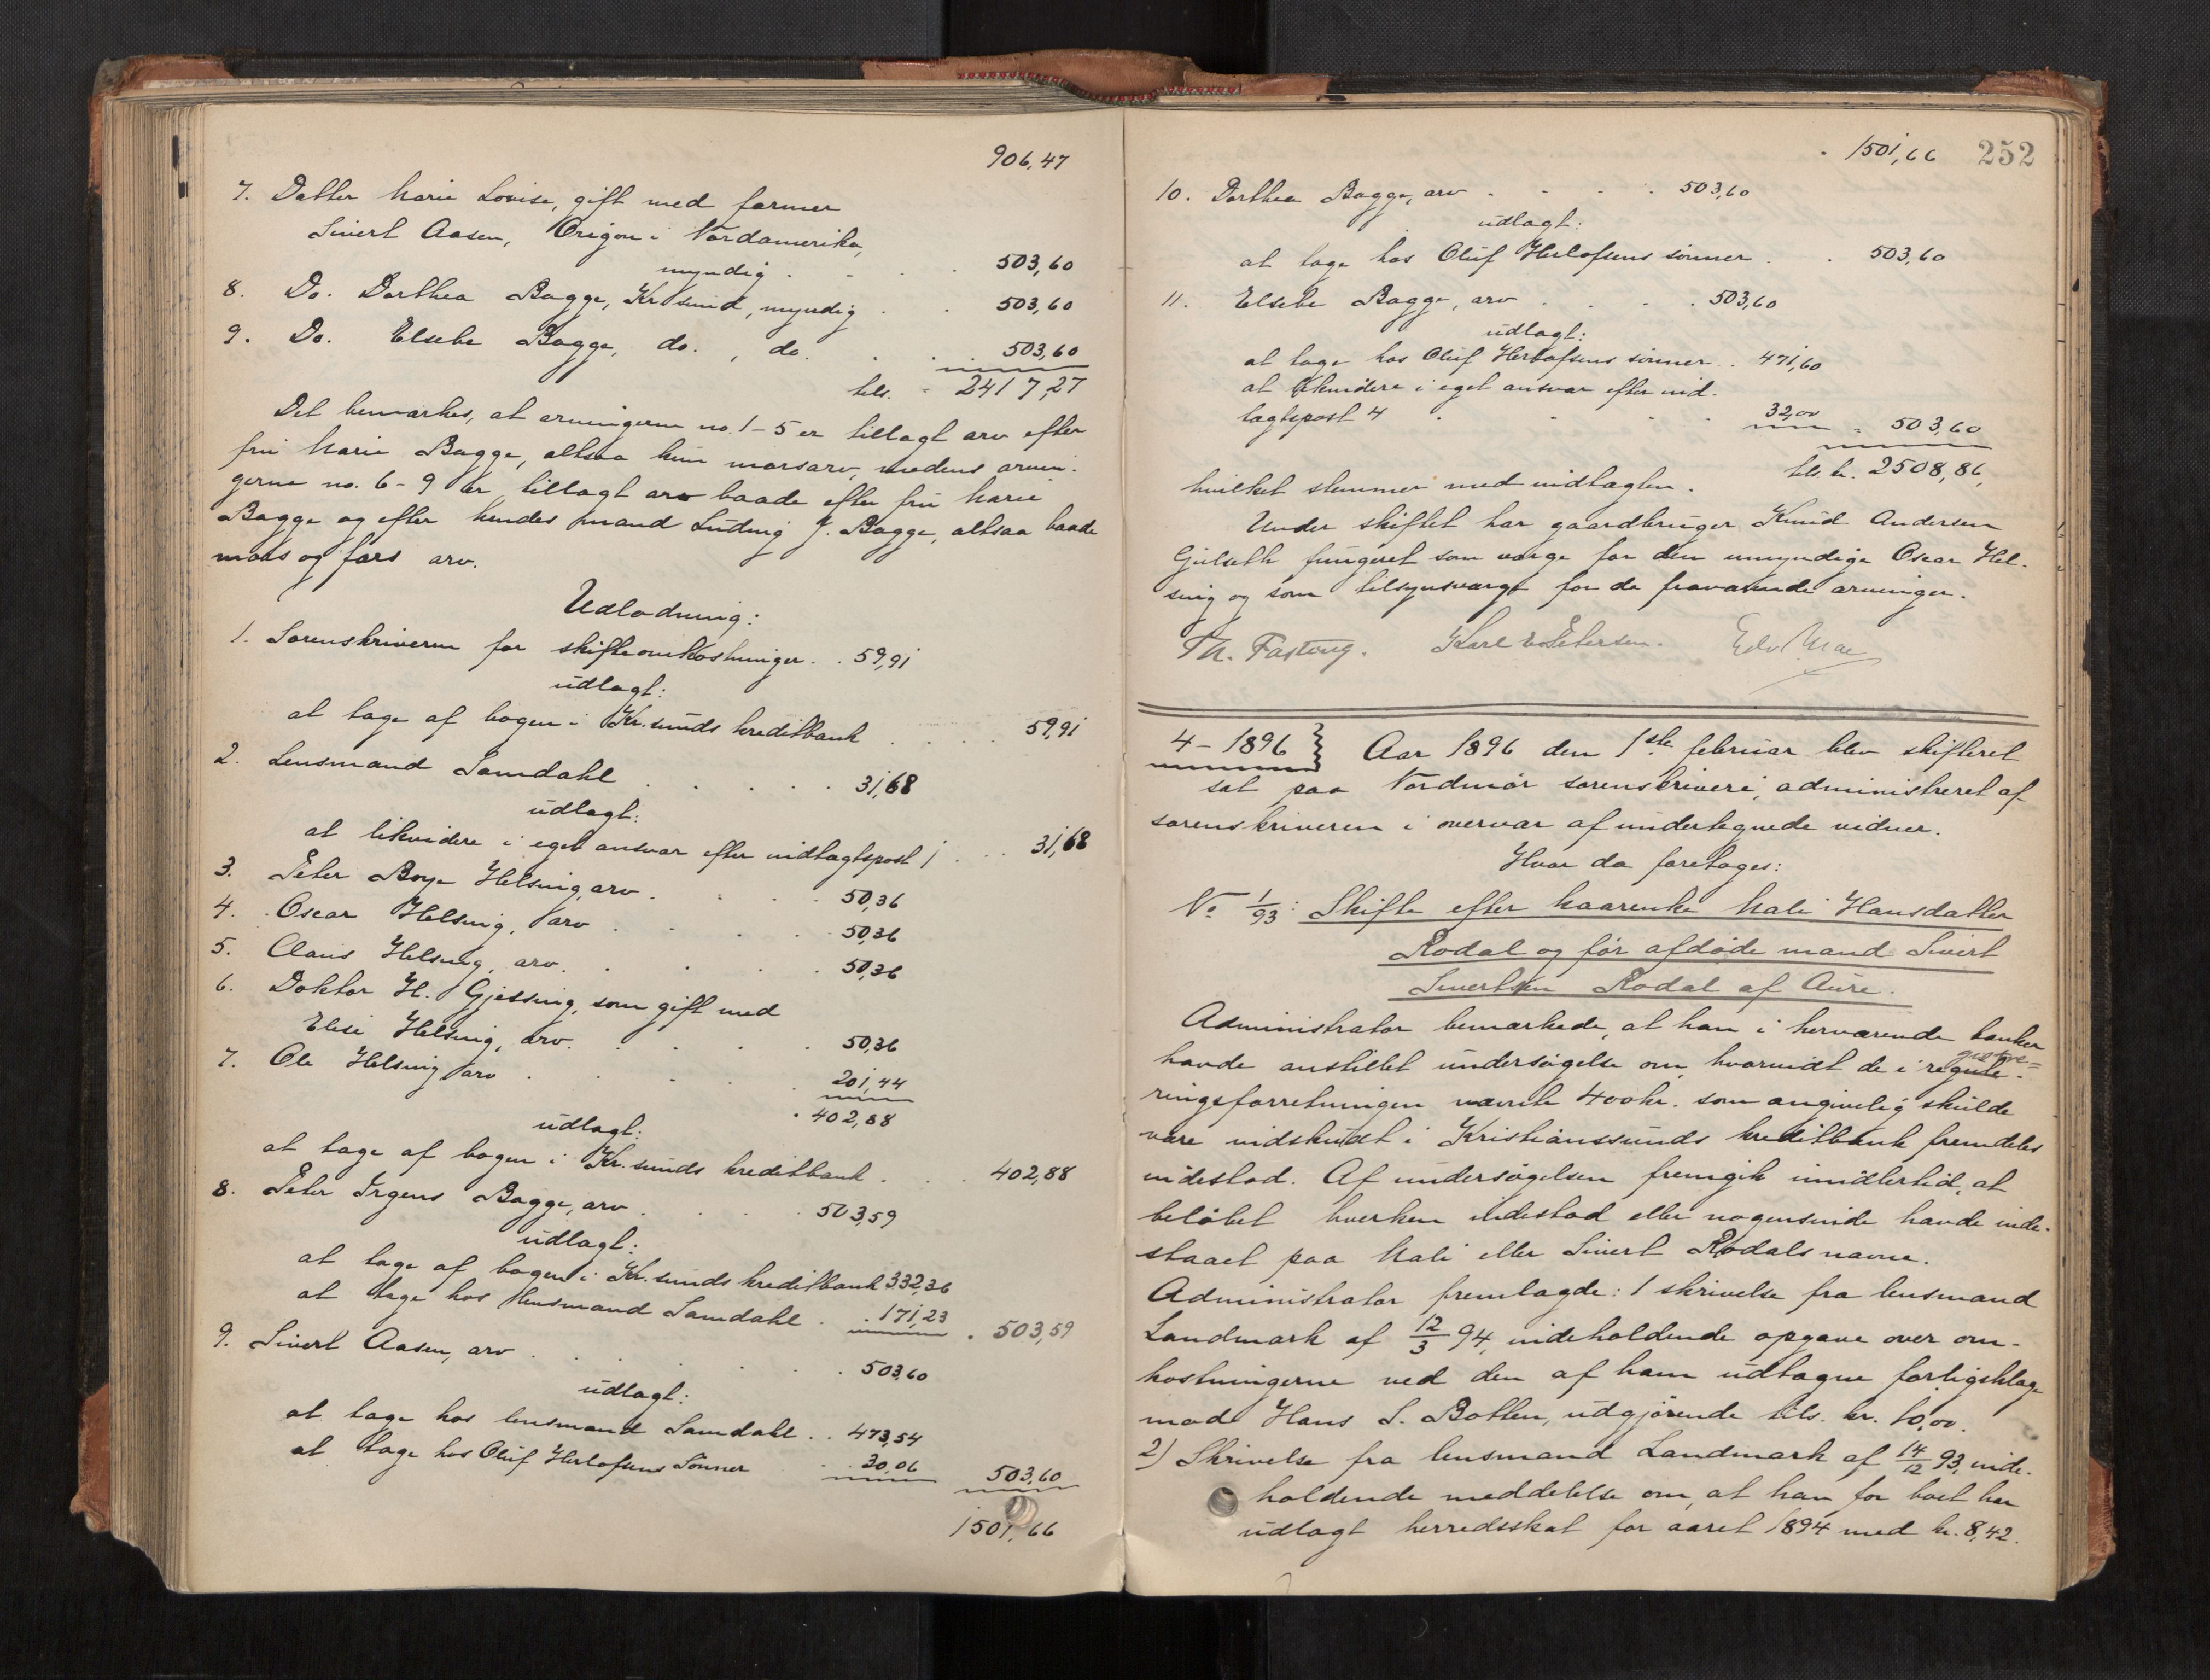 906,47
7. Datter Marie Lovise, gift med farmer
Sivert Aasen, Origon i Nordamerika,
myndig . . . 503,60
8. Do. Dorthea Bagge, Kr.sund, myndig . . 503,60
9. Do. Elsebe Bagge, do. , do. . . . 503,60
tils. - 2417,27
Det bemærkes, at arvingerne no. 1-5 er tillagt arv efter
fru Marie Bagge, altsaa kun morsarv, medens arvin-
gerne no. 6-9 er tillagt arv baade efter fru Marie
Bagge og efter hendes mand Ludvig J. Bagge, altsaa baade
mors og fars arv.
Udlodning:
1. Sorenskriveren for skifteomkostninger . . 59,91
udlagt:
at tage af bogen i Kr.sunds kreditbank . . . . 59,91
2. Lensmand Samdahl . . . . . 31,68
udlagt:
at likvidere i eget ansvar efter indtægtspost 1 . . . 31,68
3. Peter Boye Helsing, arv . . . . 50,36
4. Oscar Helsing, arv . . . . 50,36
5. Claus Helsing, arv . . . . 50,36
6. Doktor H. Gjessing, som gift med
Elise Helsing, arv . . . . 50,36
7. Ole Helsing, arv . . . . 201,44
. 402,88
udlagt:
at tage af bogen i Kr.sunds kreditbank . . . 402,88
8. Peter Irgens Bagge, arv . . . . 503,59
udlagt:
at tage af bogen i Kr.sunds kreditbank 332,36
at tage hos lensmand Samdahl . . 171,23 . 503,59
9. Sivert Aasen, arv . . . . . 503,60
udlagt:
at tage hos lensmand Samdahl . . 473,54
at tage hos Oluf Herlofsens Sønner . . 30,06 503,60
1501,66
- 1501,66 252
10. Dorthea Bagge, arv . . . . 503,60
udlagt:
at tage hos Oluf Herlofsens sønner . . 503,60
11. Elsebe Bagge, arv . . . . 503,60
udlagt:
at tage hos Oluf Herlofsens sønner . . 471,60
at likvidere i eget ansvar efter ind-
tægtspost 4 . . . . 32,00 - 503,60
tils. kr. 2508,86,
hvilket stemmer med indtægten.
Under skiftet har gaardbruger Knud Andersen
Gulseth fungeret som værge for den umyndige Oscar Hel-
sing og som tilsynsværge for de fraværende arvinger.
Th. Fasting. Karl E. Petersen. Edv. Moe
4-1896 } Aar 1896 den 1ste februar blev skifteret
sat paa Nordmør sorenskriveri, administreret af
sorenskriveren i overvær af undertegnede vidner.
Hvor da foretoges:
No 1/93: Skifte efter kaarenke Mali Hansdatter
Rodal og før afdøde mand Sivert
Sivertsen Rodal af Aure.
Administrator bemærkede, at han i herværende banker
havde anstillet undersøgelse om, hvorvidt de i registre-
ringsforretningen nævnte 400 kr. som angivelig skulde
være indskudt i Kristianssunds kreditbank fremdeles
indestod. Af undersøgelsen fremgik imidlertid, at
beløbet hverken indestod eller nogensinde havde inde-
staaet paa Mali eller Sivert Rodals navne.
Administrator fremlagde: 1 skrivelse fra lensmand
Landmark af 12/3 94, indeholdende opgave over om-
kostningerne ved den af ham udtagne forligsklage
mod Hans S. Botten, udgjørende tils. kr. 10,00.
2) Skrivelse fra lensmand Landmark af 14/12 93, inde-
holdende meddelelse om, at han for boet har
udlagt herredsskat for aaret 1894 med kr. 8,42.